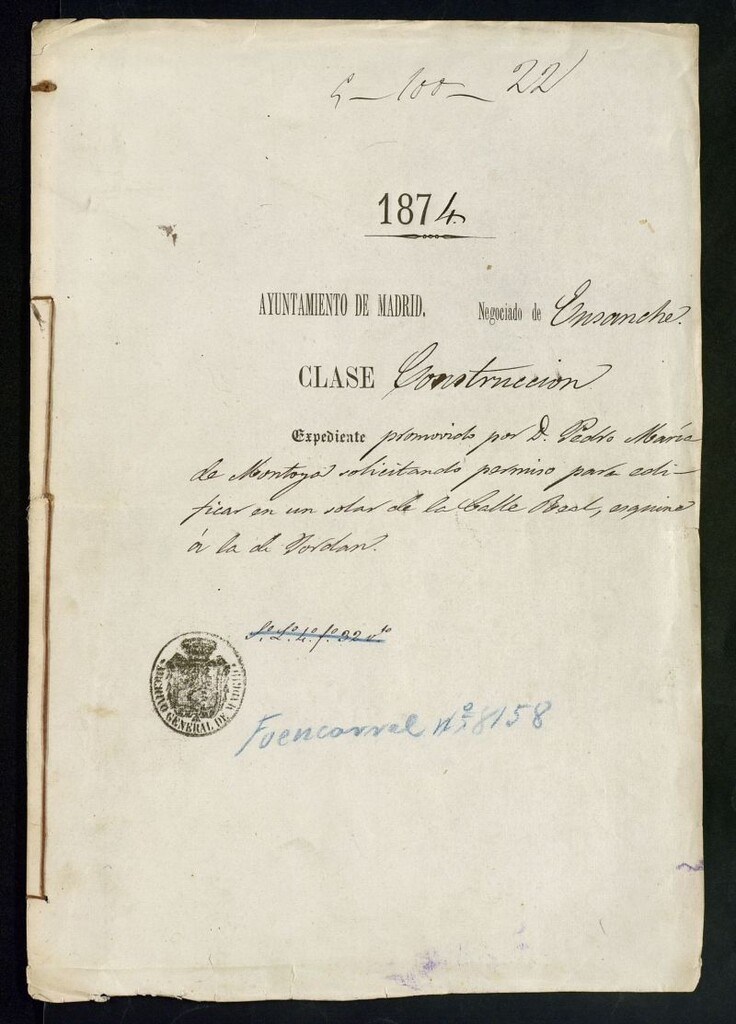 5-100-22
1874.
AYUNTAMIENTO DE MADRID. Negociado de Ensanche.
CLASE Construccion
Expediente promovido por D. Pedro María
de Montoya solicitando permiso para edi-
ficar en un solar de la Calle Real, esquina
á la de Jordan.
Sº Lº 4º fº 32 vto
ARCHIVO GENERAL DE MADRID
Fuencarral Nº 8158